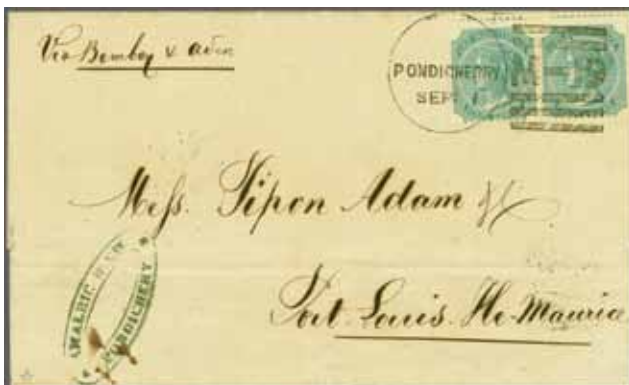 Via Bombay & Aden
PONDICHERRY
SEP. 1
Mess. Pipon Adam &C
Port Louis. Ile Maurice
AMALRIC
PONDICHERY